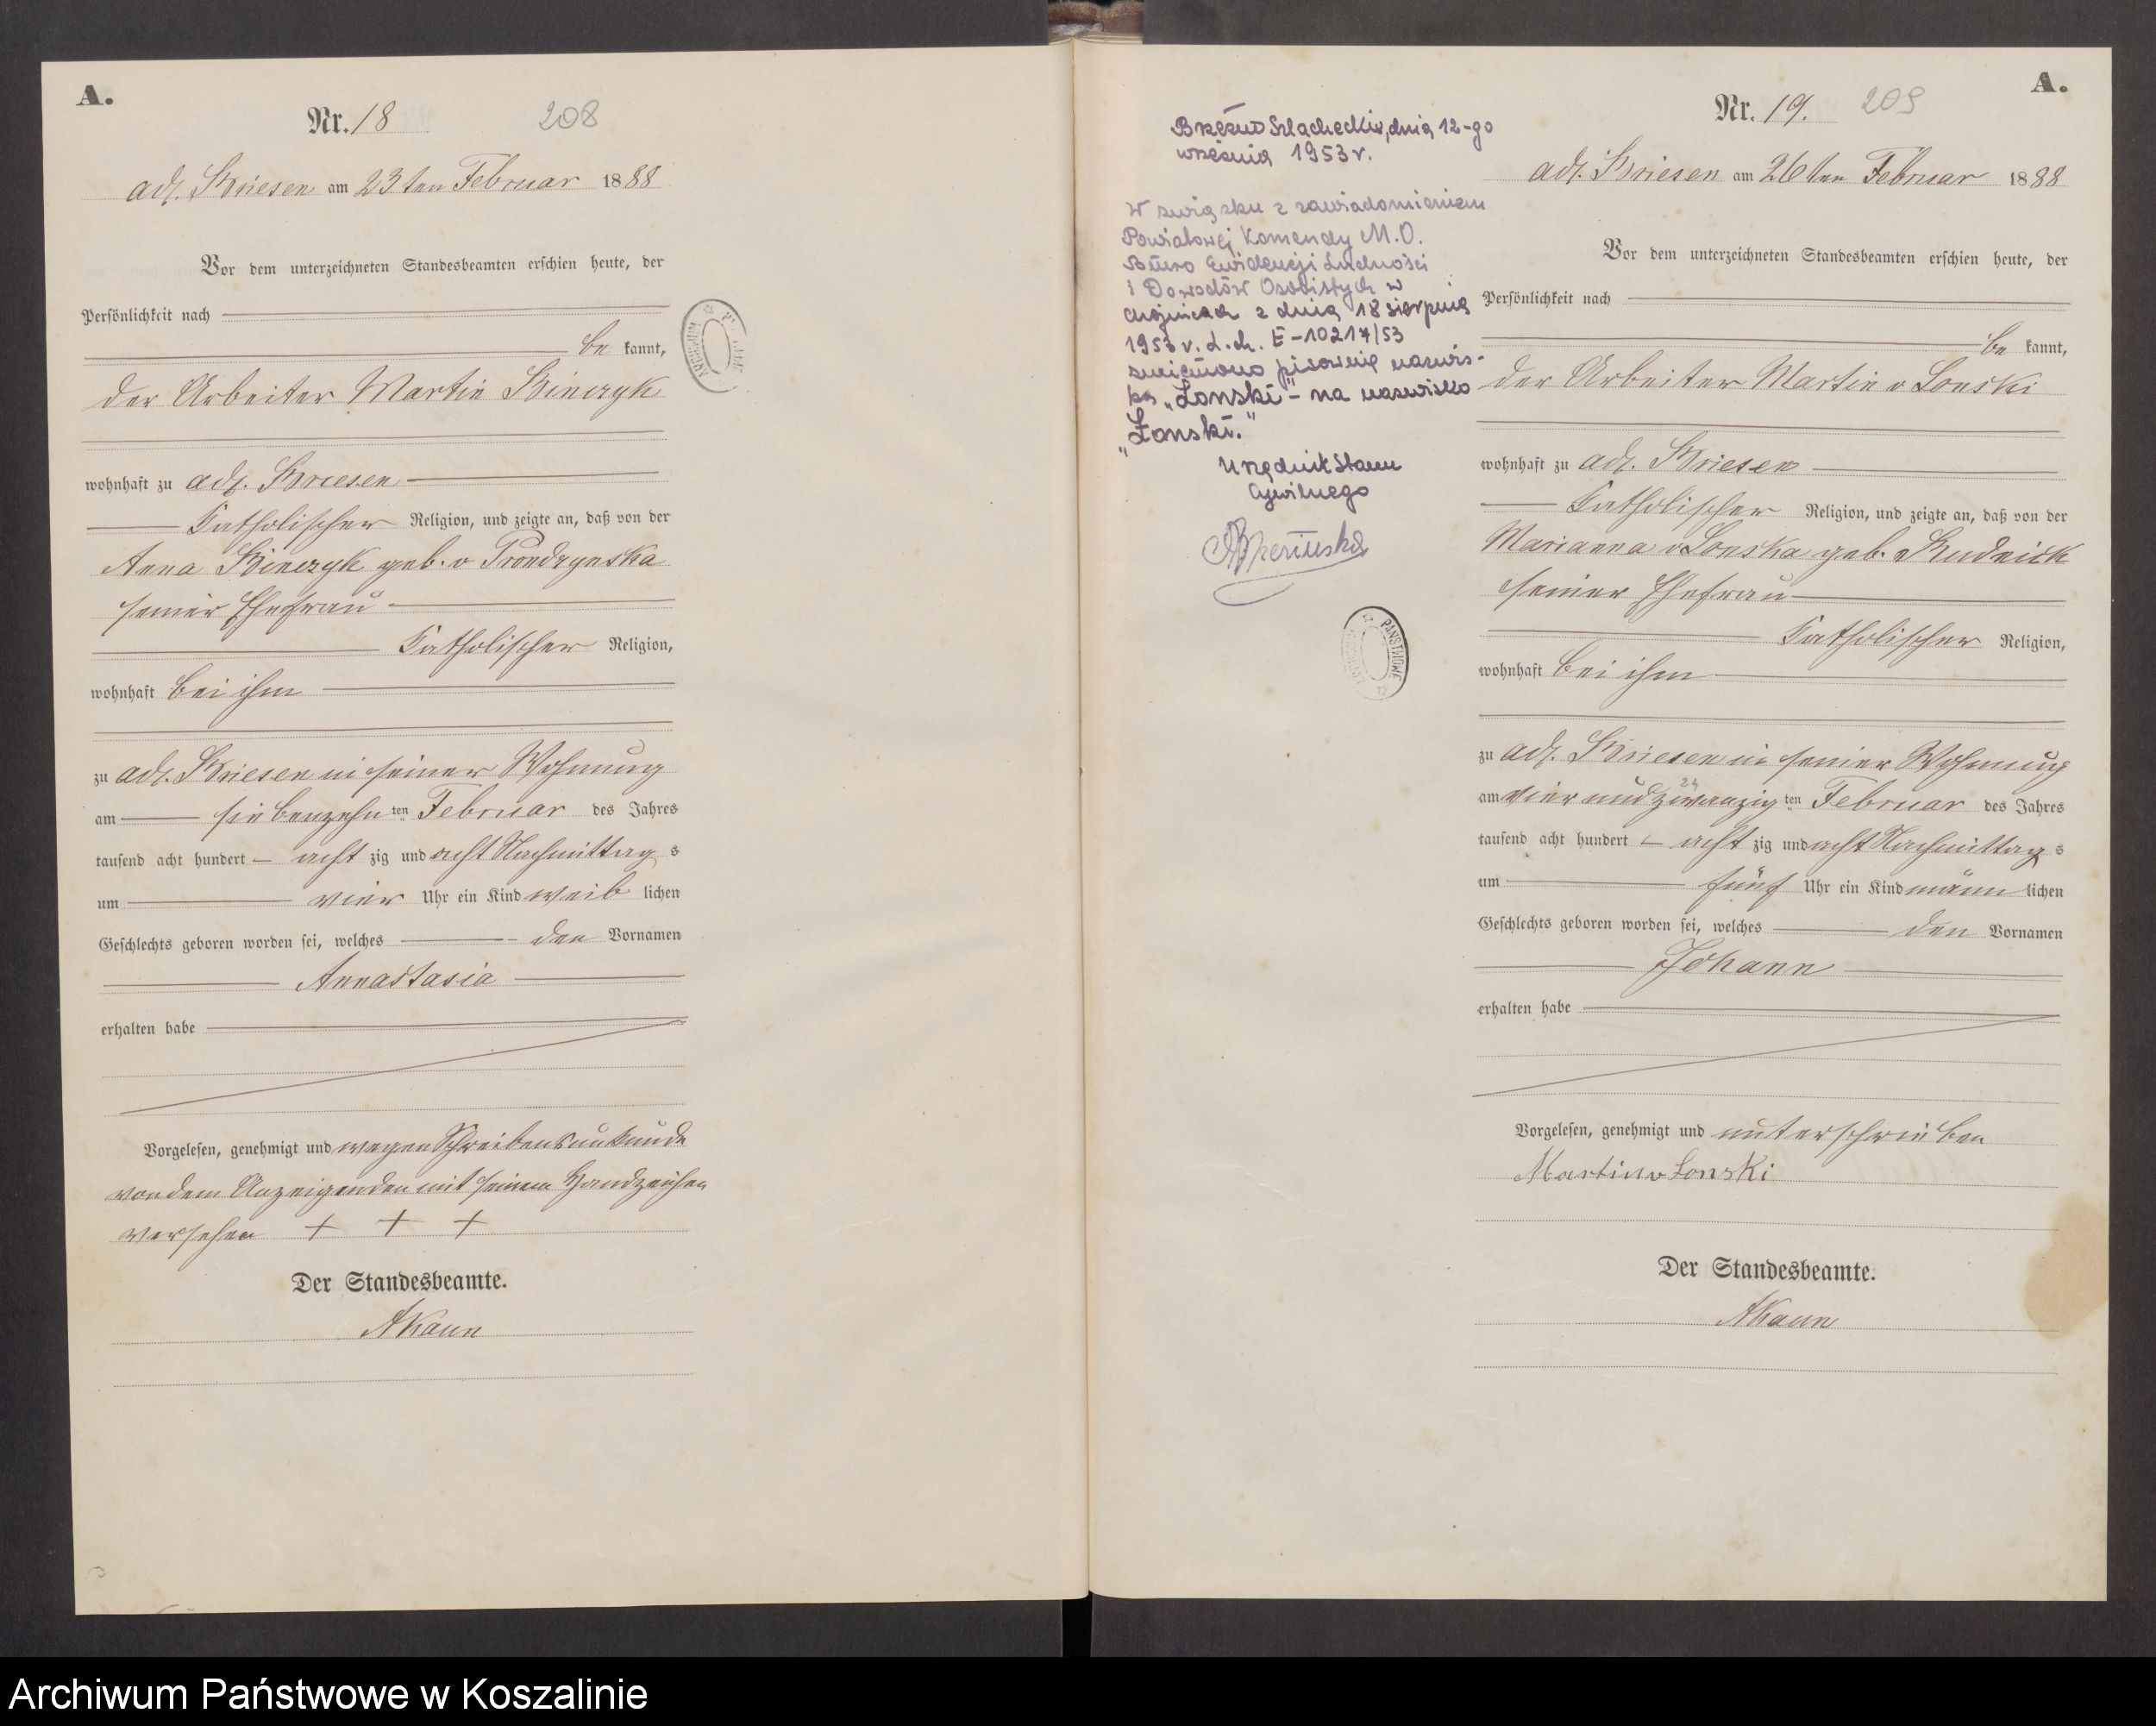 A.
Nr. 18 208
adl. Briesen am 23ten Februar 1888
Vor dem unterzeichneten Standesbeamten erschien heute, der
Persönlichkeit nach
be kannt,
der Arbeiter Martin Binczyk
wohnhaft zu adl. Briesen
katholischer Religion, und zeigte an, daß von der
Anna Binczyk geb. v Prondzynska
seiner Ehefrau
katholischer Religion,
wohnhaft bei ihm
zu adl. Briesen in seiner Wohnung
am siebenzehn ten Februar des Jahres
tausend acht hundert acht zig und acht Nachmittag s
um vier Uhr ein Kind weib lichen
Geschlechts geboren worden sei, welches den Vornamen
Annastasia
erhalten habe
Vorgelesen, genehmigt und wegen Schreibensunkunde
von dem Anzeigenden mit seinem Handzeichen
versehen + + +
Der Standesbeamte.
AKaun
A.
Nr. 19. 209
adl. Briesen am 26ten Februar 1888
Vor dem unterzeichneten Standesbeamten erschien heute, der
Persönlichkeit nach
be kannt,
der Arbeiter Martin v Lonski
wohnhaft zu adl. Briesen
katholischer Religion, und zeigte an, daß von der
Marianna v Lonska geb. v Rudnick
seiner Ehefrau
katholischer Religion,
wohnhaft bei ihm
zu adl. Briesen in seiner Wohnung
24
am vier und zwanzig ten Februar des Jahres
tausend acht hundert acht zig und acht Nachmittag s
um fünf Uhr ein Kind männ lichen
Geschlechts geboren worden sei, welches den Vornamen
Johann
erhalten habe
Vorgelesen, genehmigt und unterschrieben
Martin v Lonski
Der Standesbeamte.
AKaun
Brzeźno Szlacheckie, dnia 12-go
września 1953 r.
W związku z zawiadomieniem
Powiatowej Komendy M.O.
Biuro Ewidencji Ludności
i Dowodów Osobistych w
Chojnicach z dnia 18 sierpnia
1953 r. L.ch. E-10217/53
zmieniono pisownię nazwis-
ka „Lonski" - na nazwisko
„Łonski."
Urzędnik Stanu
Cywilnego
PAŃSTWOWE
Archiwum Państwowe w Koszalinie